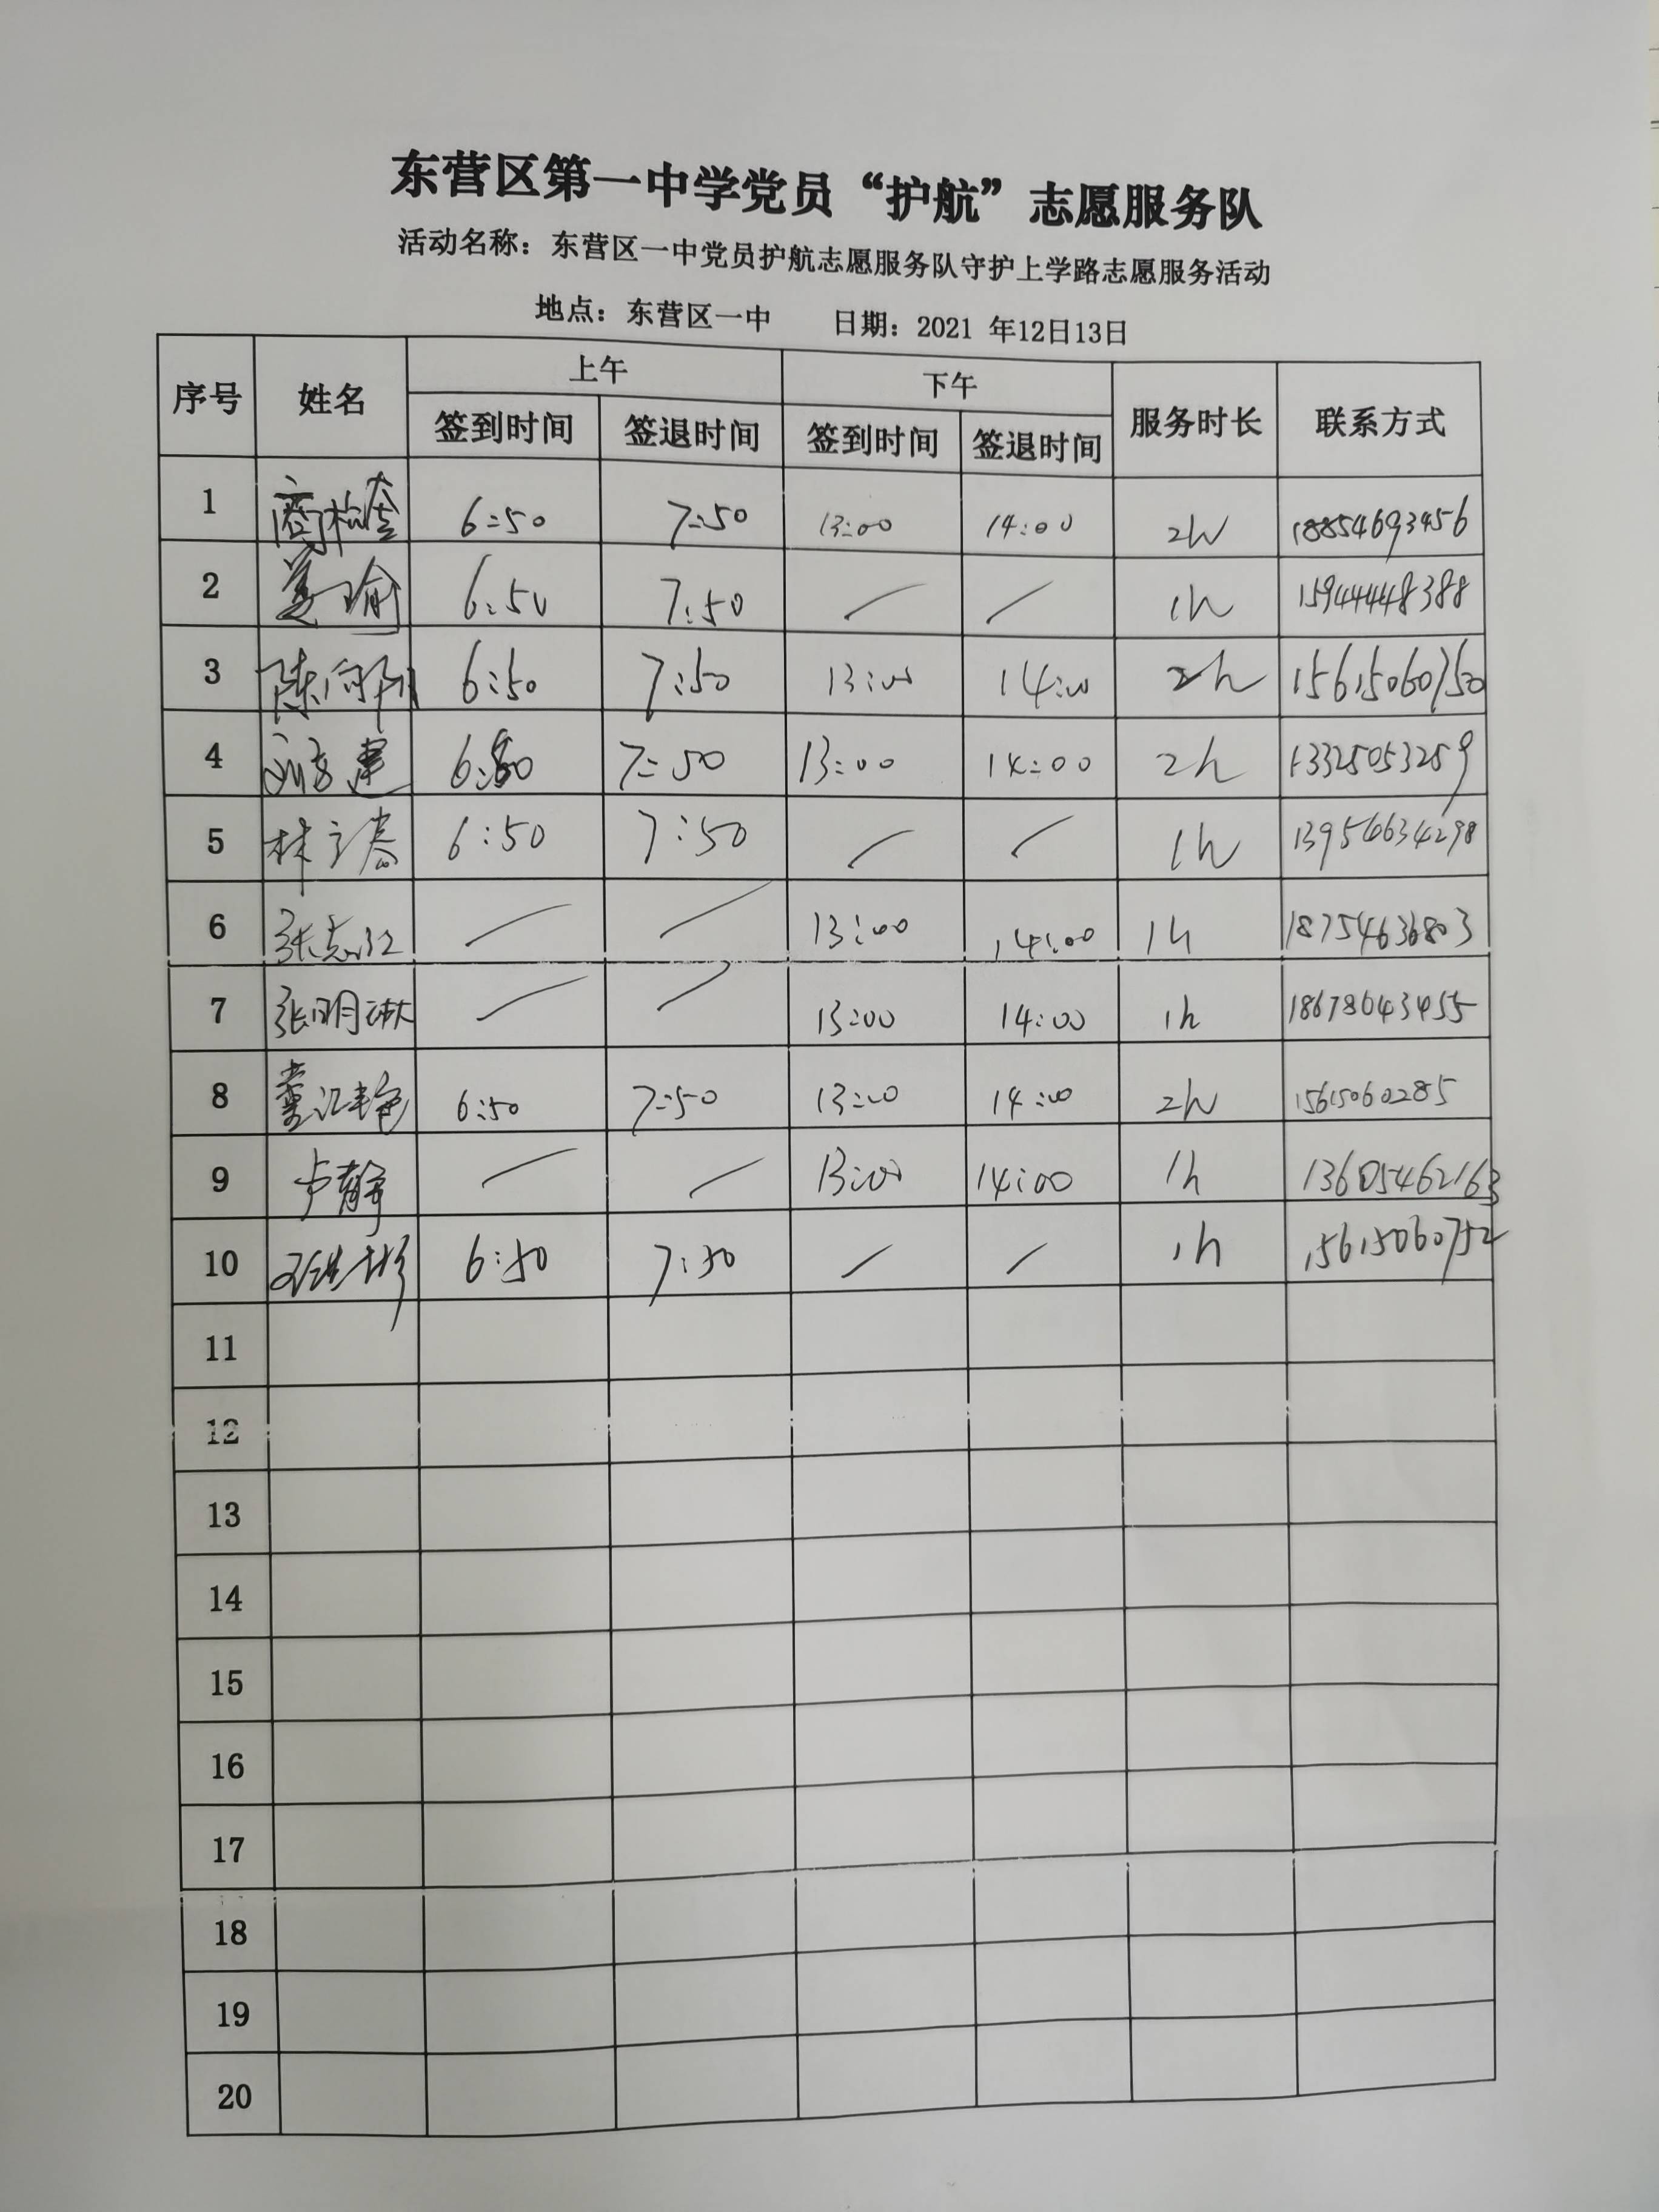 东营区第一中学党员“护航”志愿服务队
活动名称：东营区一中党员护航志愿服务队守护上学路志愿服务活动
地点：东营区一中 日期：2021 年12日13日
序号 姓名 上午 下午 服务时长 联系方式
签到时间 签退时间 签到时间 签退时间
1 6:50 7:50 13:00 14:00 2h 18854693456
2 姜瑜 6:50 7:50 / / 1h 15944448388
3 陈向阳 6:50 7:50 13:00 14:00 2h 15615060750
4 6:50 7:50 13:00 14:00 2h 13325053259
5 林立春 6:50 7:50 / / 1h 13954634298
6 / / 13:00 14:00 1h 18754636803
7 张明琳 / / 13:00 14:00 1h 18678643455
8 董江艳 6:50 7:50 13:00 14:00 2h 15615060285
9 卢静 / / 13:00 14:00 1h 13605462163
10 6:50 7:50 / / 1h 15615060752
11
12
13
14
15
16
17
18
19
20